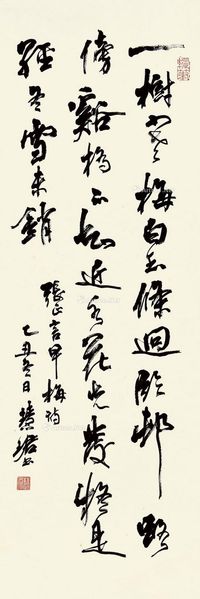 一樹寒梅白玉條迥臨邨路
傍谿橋不知近水花先發疑是
經冬雪未銷
張正言早梅詩
乙丑冬日慧珺書